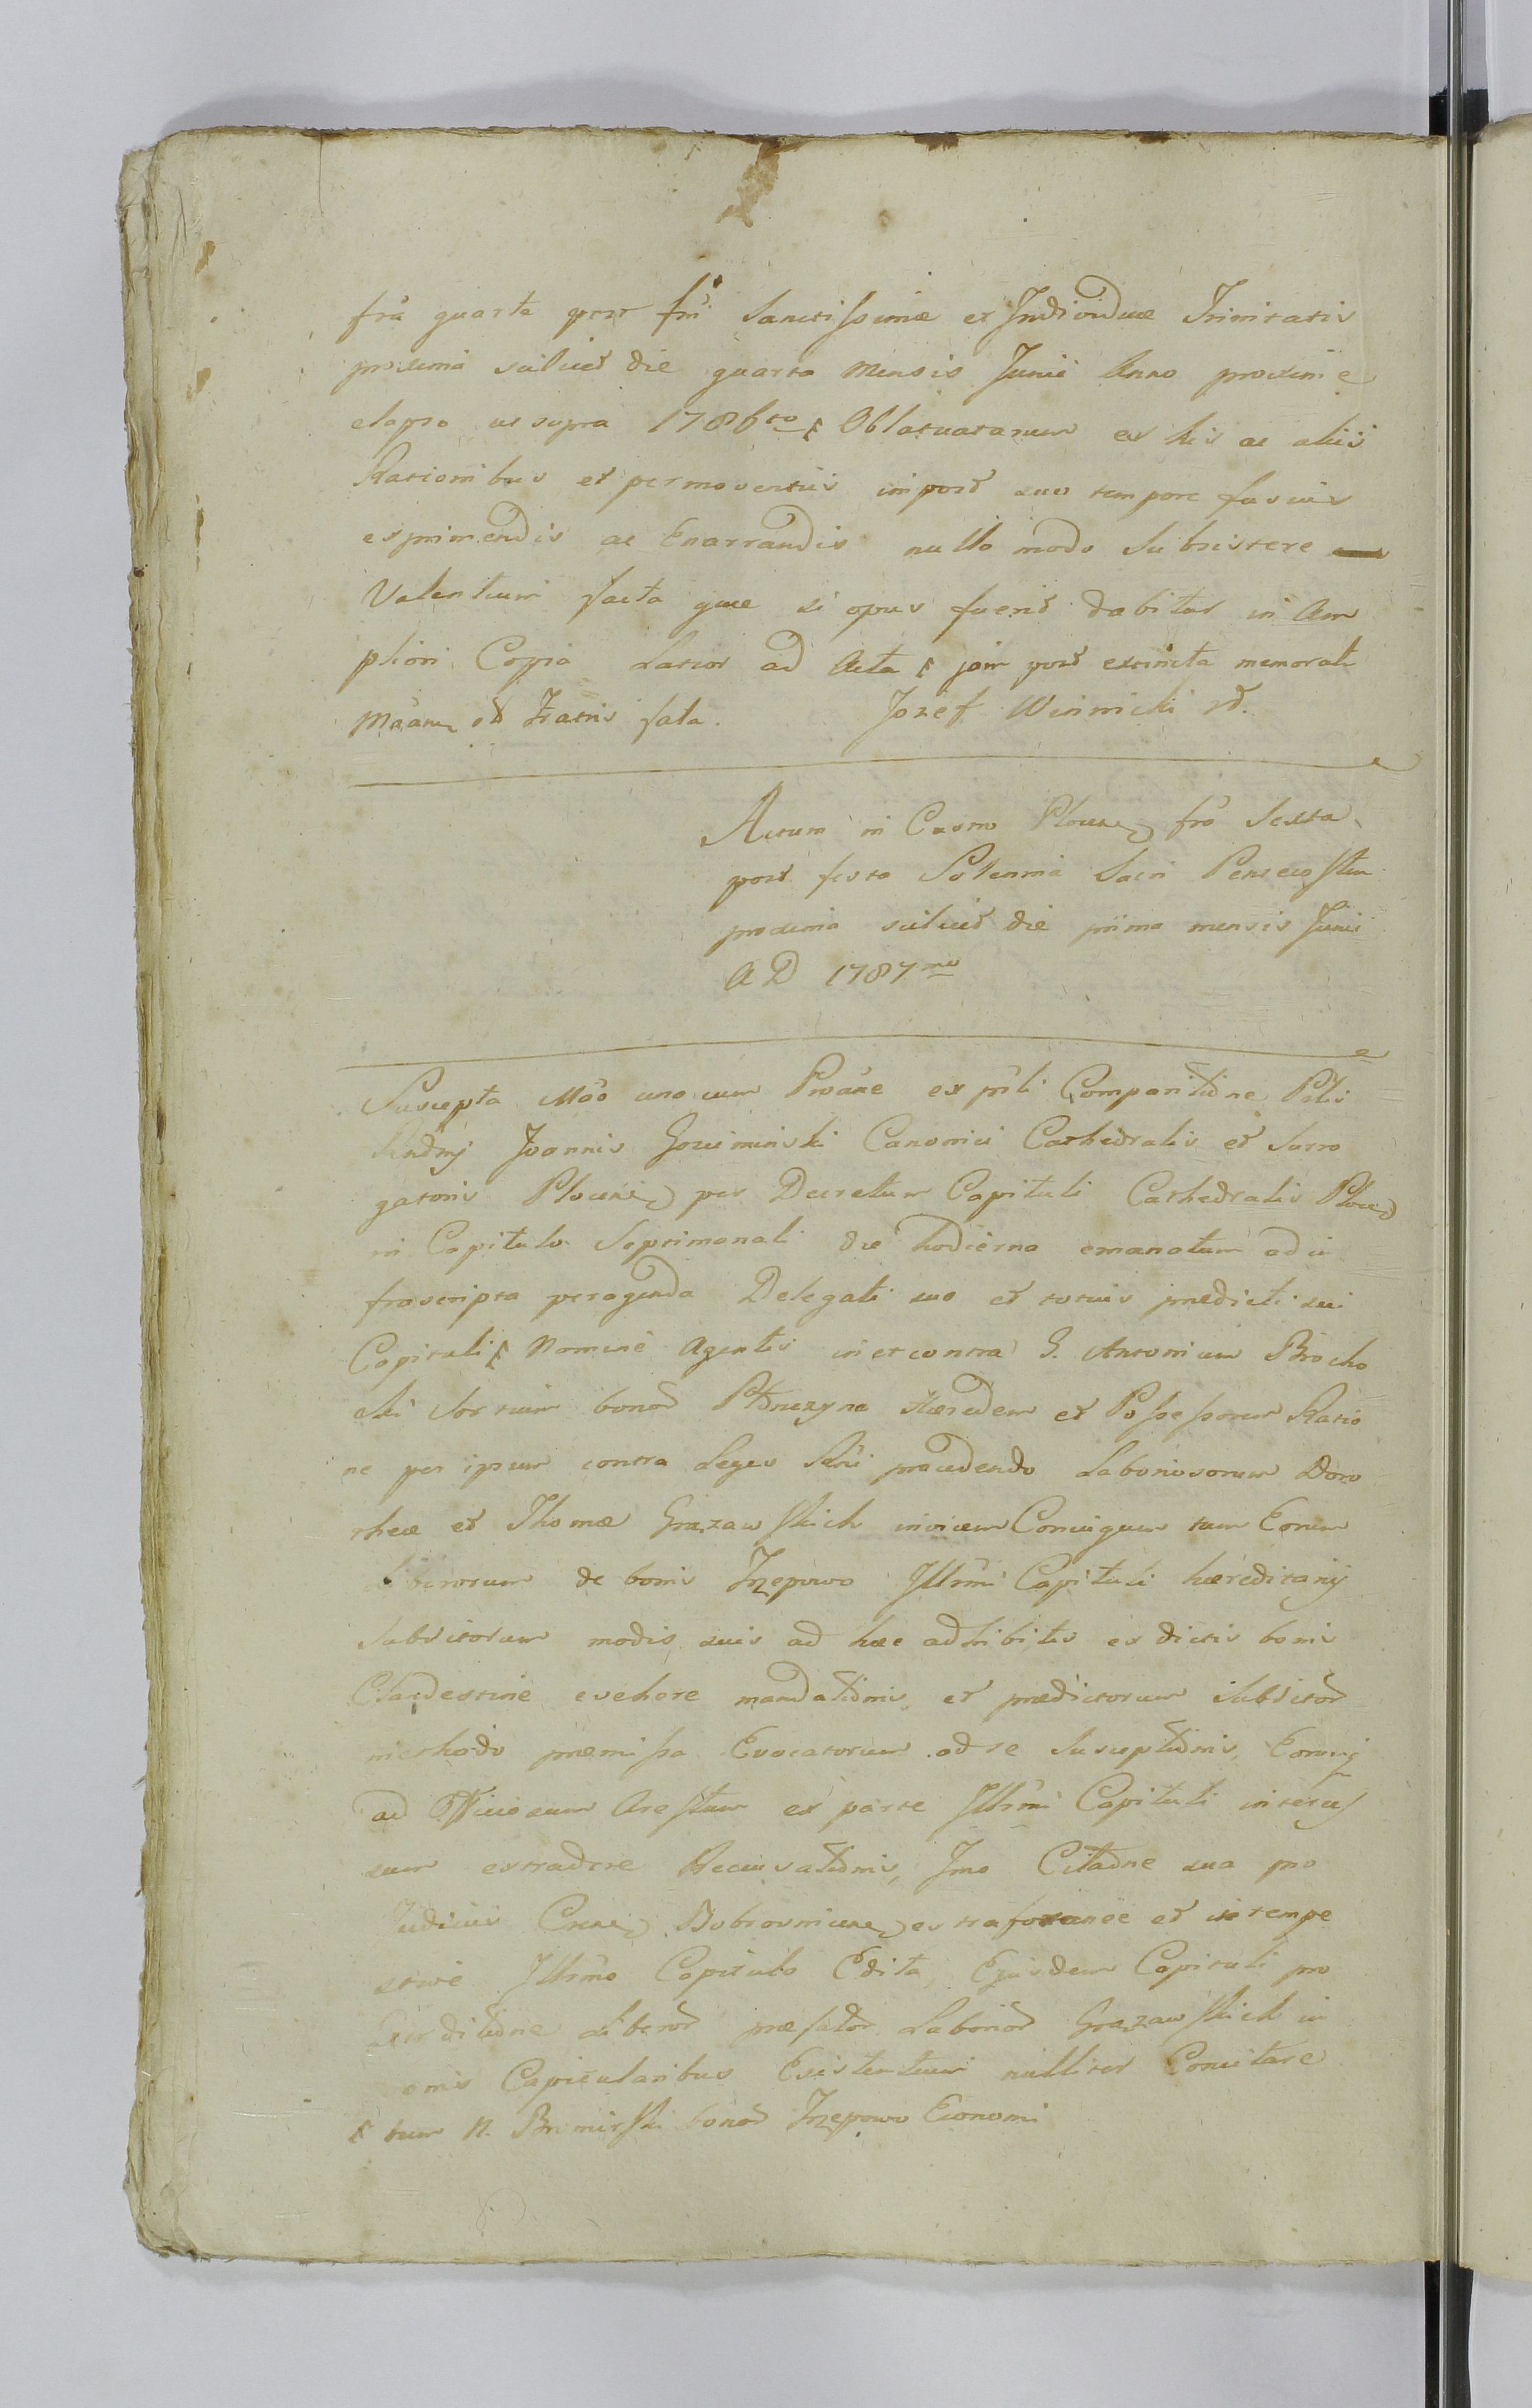 fra quarta post fm Sanctissimæ et Individuæ Trinitatis
proxima scilicet die quarta Mensis Junii Anno proxime
elapso ut supra 1786to Oblatuatarum ex his ac aliis
Rationibus et permoventiis in post suo tempore fusius
exprimendis ac Enarrandis nullo modo Subsistere
Valentium facta quæ si opus fuerit dabitur in Am
pliori Copia Latior ad Acta post extincta memorati
Fratris fata. Jozef Winnicki
Actum in Castro Plocen fra Sexta
post festa Solennia Sacri Pentecosten
proxima scilicet die prima mensis Junii
A D 1787mo
Suscepta Mo una cum ex Comparitione
Joannis Canonici Cathedralis et Surro
gatoris Plocen per Decretum Capituli Cathedralis Plocen
in Capitulo Septimanali die hodierna emanatum ad in
frascripta peragenda Delegati suo et totius prædicti sui
Capituli Nomine Agentis in et contra G. Antonium Brocho
ski Sortium bonor Hæredem et Possessorem Ratio
ne per ipsum contra Leges procedendo Laboriosorum Doro
theæ et Thomæ Grazawskich invicem Conjugum tum Eorum
Liberorum de bonis Trzepowo Illrmi Capituli hæreditarij
Subditorum modis suis ad hæc adhibitis ex dictis bonis
Clandestine evehere mandationis, et prædictorum Subditor
methodo præmissa Evocatorum ad se Susceptionis, Eorumq
ad Officiosum Arestum ex parte Illrmi Capituli interces
sum extradere Recusationis, Imo Citatione sua pro
Judiciis Bobrovnicen extraforanee et intempe
stive Illrmo Capitulo Edita, Ejusdem Capituli pro
Liberor præfator Laborior Grazawskich in
onis Capitularibus Existentium nulliter Concitare
tum N. bonor Trzepowo Economi